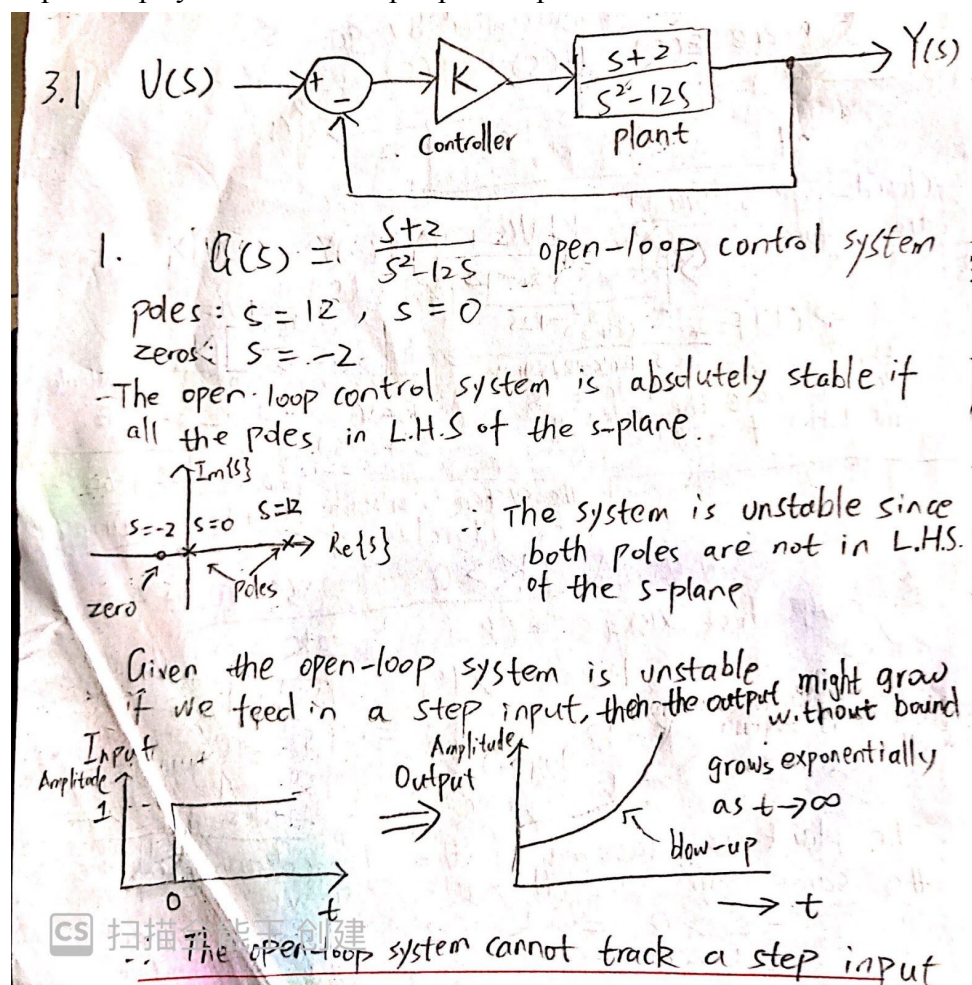 3.1 U(s) + - K s+2 Y(s)
s²-12s
Controller plant
1. G(s) = s+2 / s²-12s open-loop control system
poles: s = 12, s = 0
zeros: s = -2
-The open-loop control system is absolutely stable if
all the poles in L.H.S of the s-plane.
Im{s}
s=-2 s=0 s=12 Re{s}
zero poles
∴ The system is unstable since
both poles are not in L.H.S.
of the s-plane
Given the open-loop system is unstable
if we feed in a step input, then the output might grow
without bound
Input
Amplitude
1
0
t
⇒ Output
Amplitude
grows exponentially
as t→∞
blow-up
→ t
CS 扫描全能王 创建
∴ The open-loop system cannot track a step input